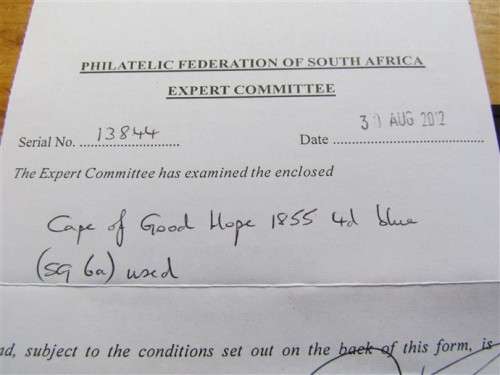 PHILATELIC FEDERATION OF SOUTH AFRICA
EXPERT COMMITTEE
Serial No. 13844 Date 30 AUG 2012
The Expert Committee has examined the enclosed
Cape of Good Hope 1855 4d blue
(SG 6a) used
nd, subject to the conditions set out on the back of this form, is